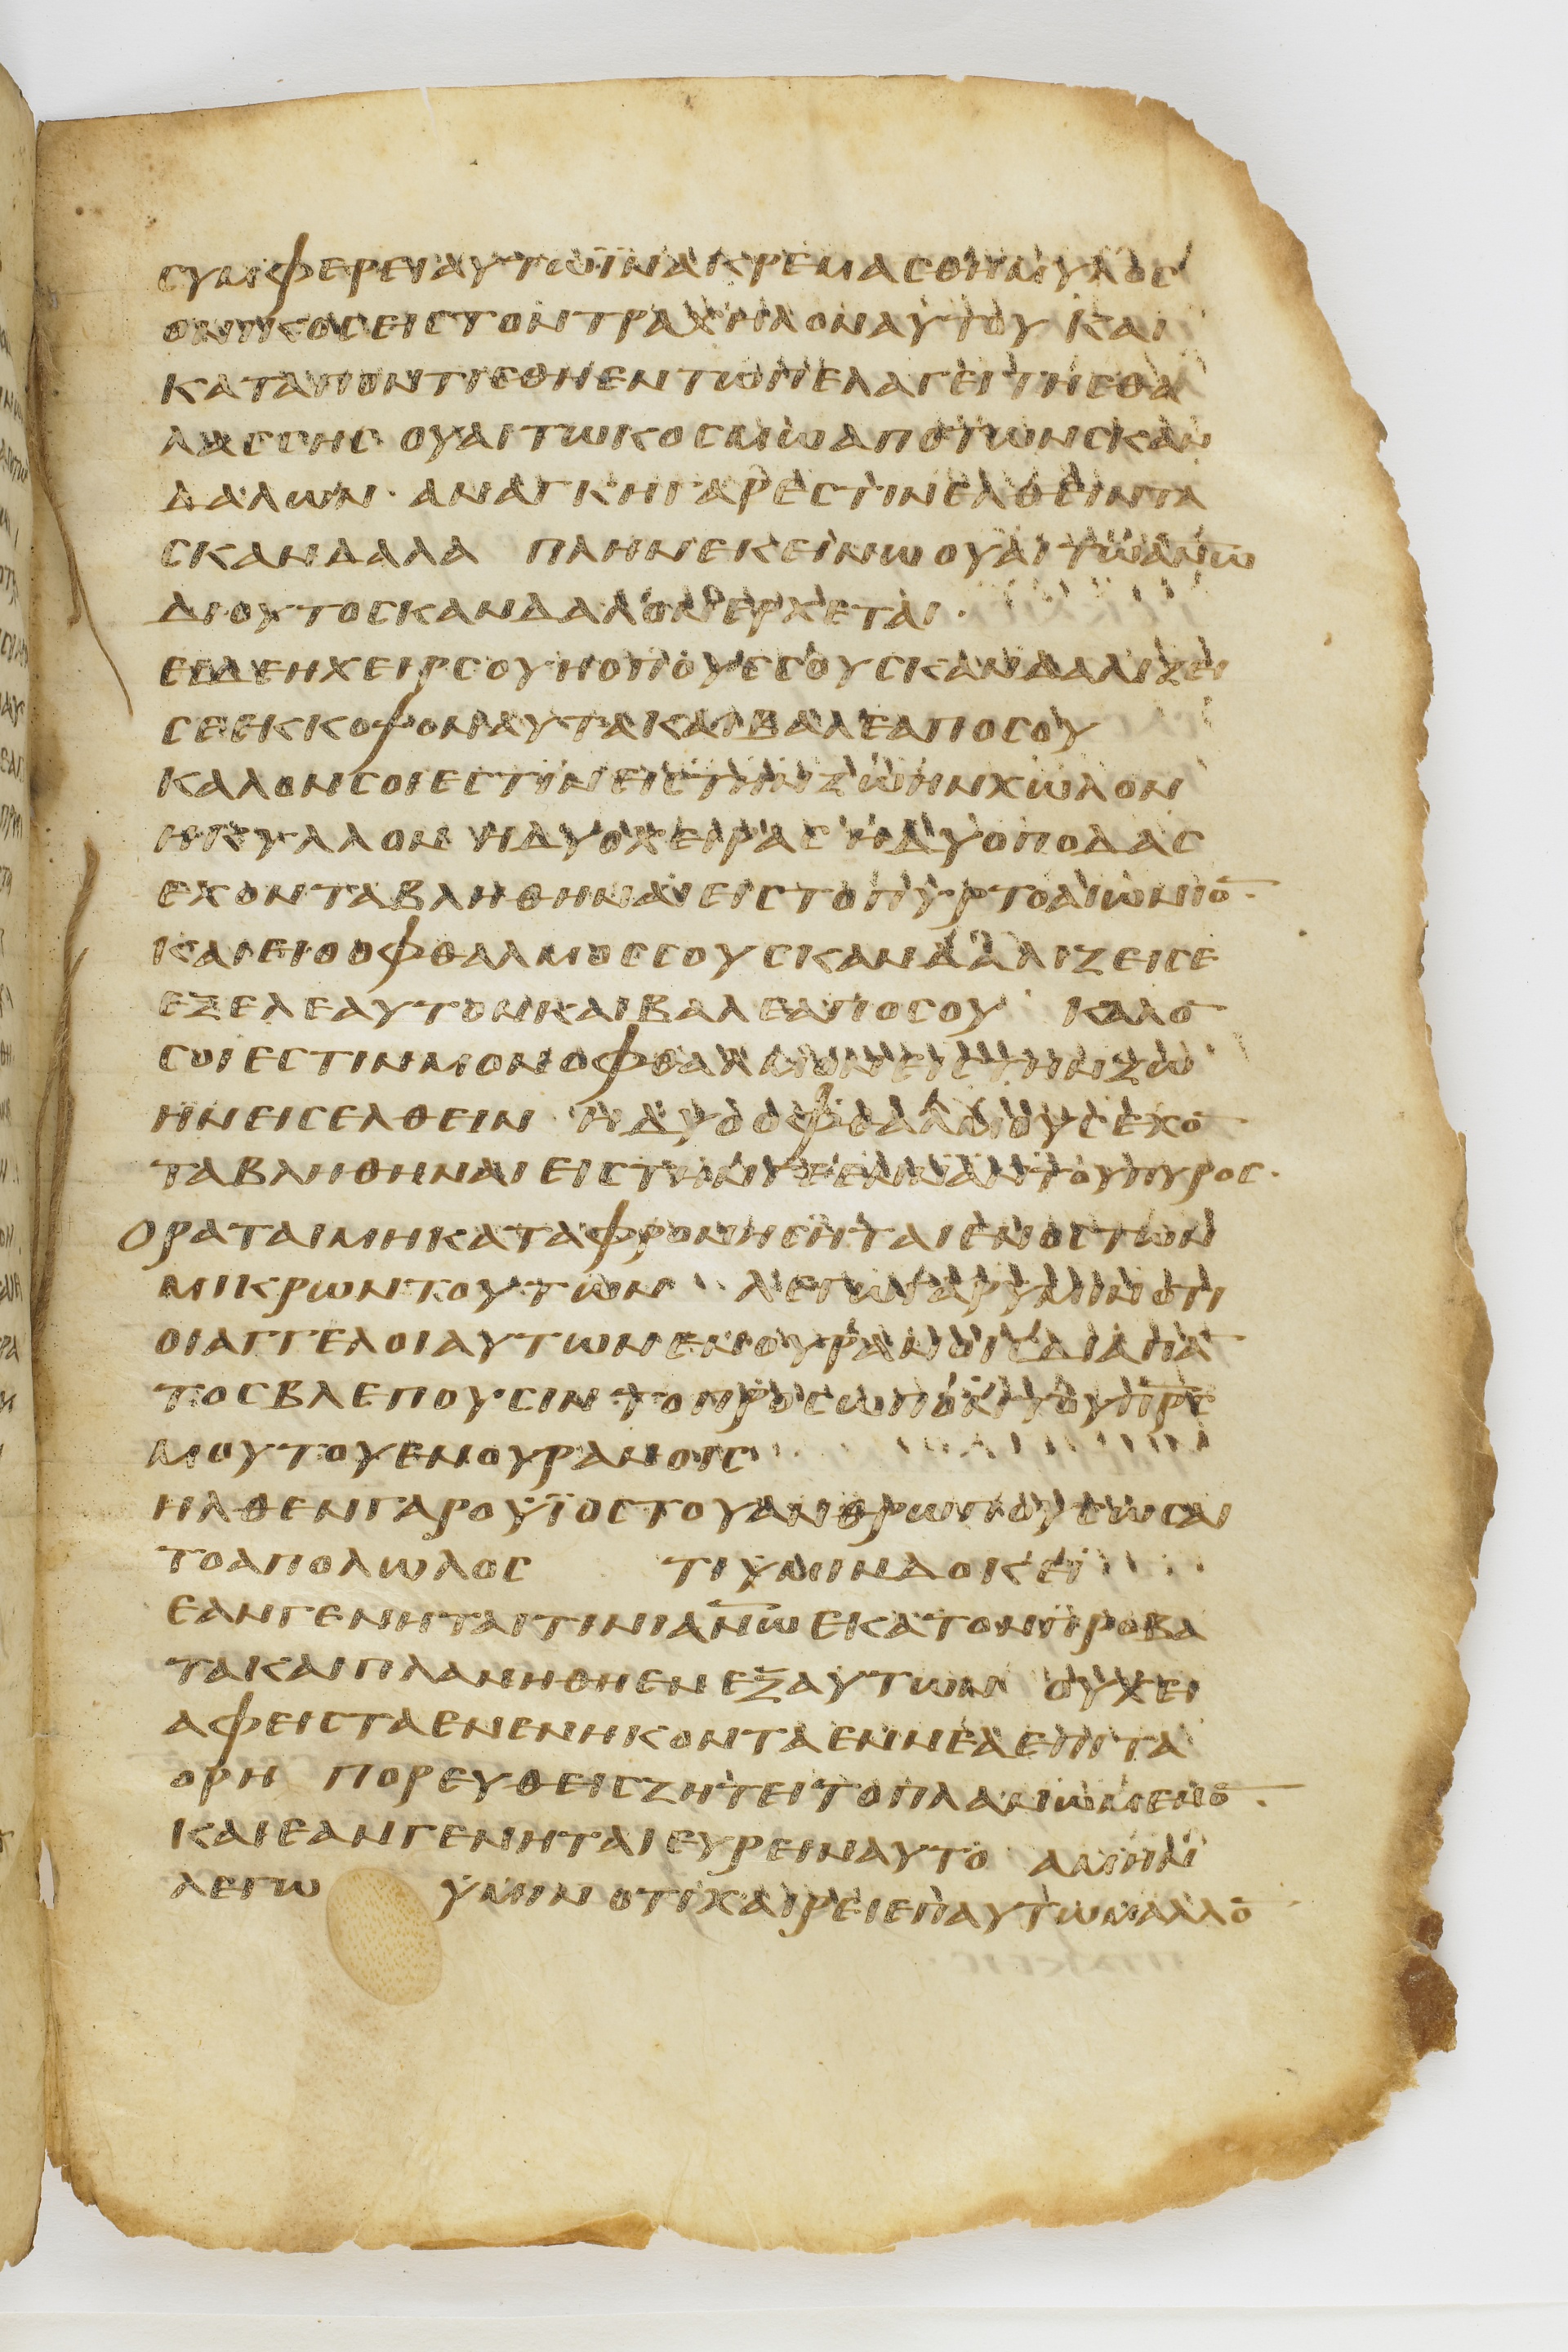 ϲυμφερειαυτωϊνακρεμαϲθημυλοϲ
ονικοϲειϲτοντραχηλοναυτουκαι
καταποντιϲθηεντωπελαγειτηϲθα
λαϲϲηϲ ουαιτωκοϲμωαποτωνϲκαν
δαλων· αναγκηγαρεϲτινελθειντα
ϲκανδαλα πληνεκεινωουαιτωαν̅ω̅
διουτοϲκανδαλονερχεται·
ειδεηχειρϲουηοπουϲϲουϲκανδαλιζει
ϲεεκκοψοναυτακαιβαλεαποϲου
καλονϲοιεϲτινειϲτηνζωηνχωλον
ηκυλλον ηδυοχειραϲηδυοποδαϲ
εχονταβληθηναιειϲτοπυρτοαιωνιο̅·
καιειοοφθαλμοϲϲουϲκανδαλιζειϲε
εξελεαυτονκαιβαλεαποϲου καλο̅
ϲοιεϲτινμονοφθαλμονειϲτηνζω
ηνειϲελθειν ηδυοοφθαλμουϲεχο̅
ταβληθηναιειϲτηνγεενναντουπυροϲ·
οραταιμηκαταφρονηϲηταιενοϲτων
μικρωντουτων λεγωγαρυμινοτι
οιαγγελοιαυτωνενουρανοιϲδιαπα̅
τοϲβλεπουϲιντοπροϲωποντουπ̅ρ̅ϲ̅
μουτουενουρανοιϲ
ηλθενγαρουϊοϲτουανθρωπουϲωϲαι
τοαπολωλοϲ τιυμινδοκει
εανγενηταιτινιαν̅ω̅εκατονπροβα
τακαιπλανηθηενεξαυτων ουχει
αφειϲταενενηκονταεννεαεπιτα
ορη πορευθειϲζητειτοπλανωμενο̅·
καιεανγενηταιευρειναυτο αμην
λεγω υμινοτιχαιρειεπαυτωμαλλο̅